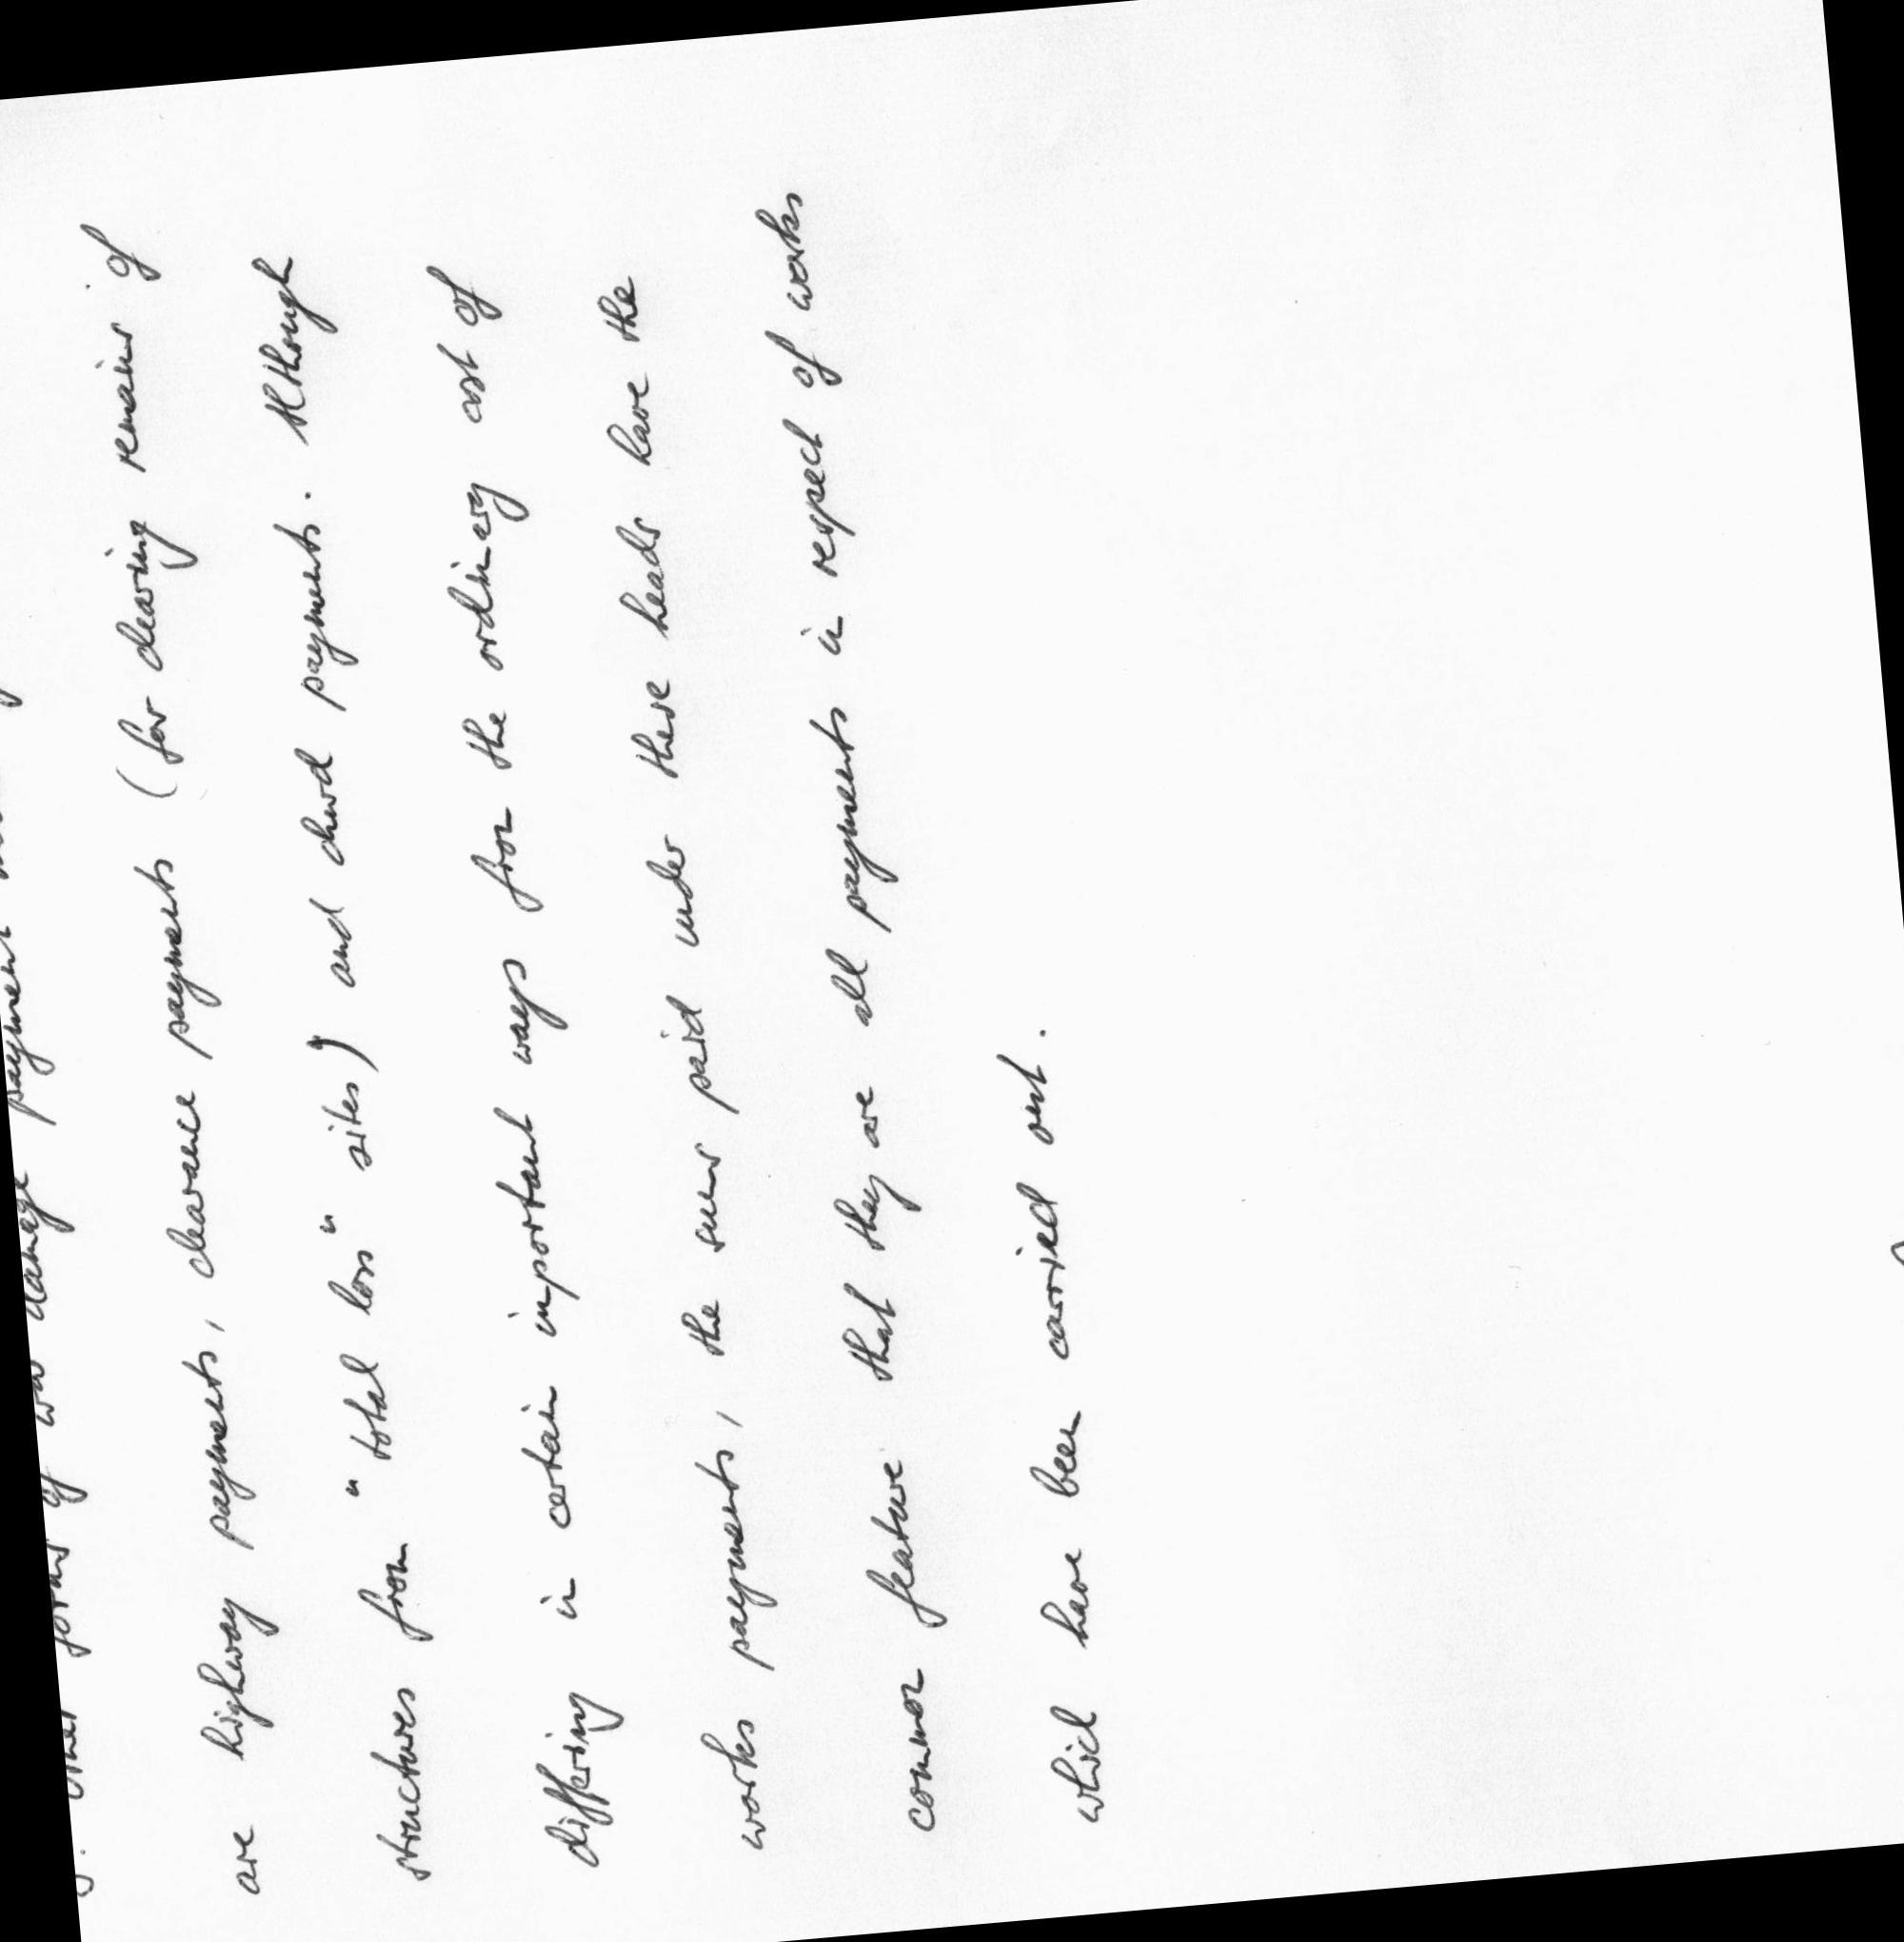 forms of war damage payment
are highway payments, clearance payments (for clearing remains of
structures from "total loss" sites) and church payments. Although
differing in certain important ways from the ordinary cost of
works payments, the sums paid under these heads have the
common feature that they are all payments in respect of works
which have been carried out.